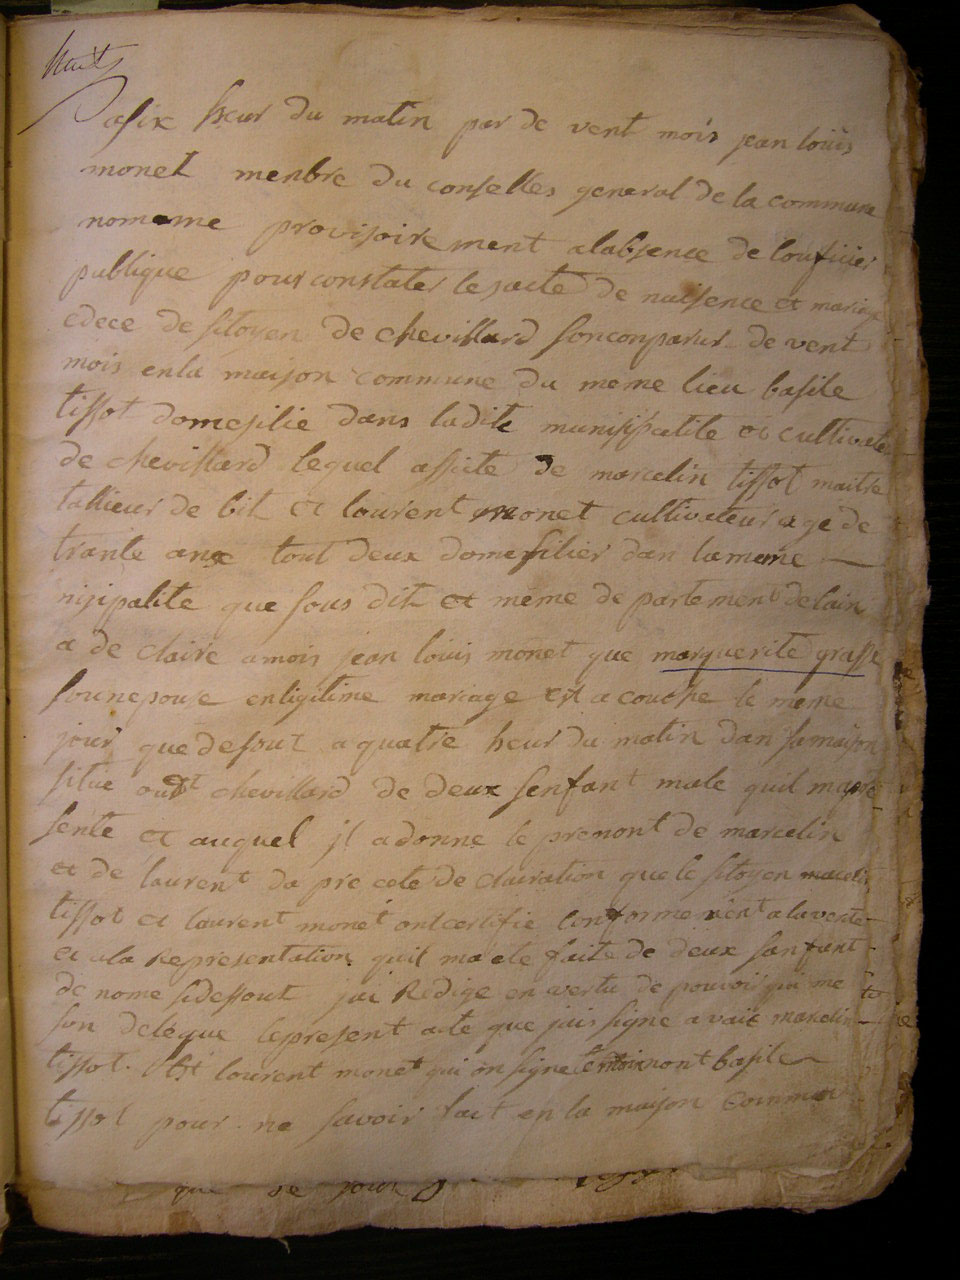 huit
a six heur du matin par de vent mois jean louis
monet menbre du conselles general de la commune
nomeme provisoirement a labsence de loufficier
publique pour constater le sacte de naisence et mariage
edece de sitoyen de chevillard son conparur de vent
mois en la maison commune du meme lieu basile
tissot domesilie dans ladite munissipalite et cultivateur
de chevillard lequel assiste de marcelin tissot maitre
tallieur de bit et lourent monet cultivateur age de
trante ans tout deux domessilier dan la meme
nisipalite que sous dit et meme de partement de lain
a de claire a mois jean louis monet que marguerite grasse
soun epouse en ligitime mariage est a couche le meme
jour que desout a quatre heur du matin dan sa maison
situe oudt chevillard de deux senfant male quil ma pre
sente et auquel jl a donne le prenont de marcelin
et de laurent da pre cete de clairation que le sitoyen marcelin
tissot et laurent monet ont certifie conforme ment a la verite
et a la Representation quil ma ete faite de deux sanfant
de nome sidessout jai Redige en vertu de pouvoir qui me
son delegue le present acte que jais signe a vait marcelin
tissot et lourent monet qui on signe temoin nont basile
tissot pour ne savoir fait en la maison Commu
que se jour